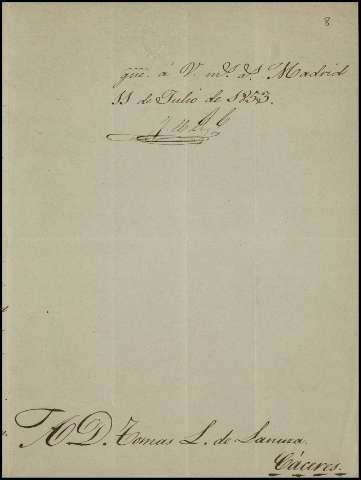 8
gũe. á V. m.s a.s Madrid
11 de Julio de 1853.
A D. Tomas L. de Sanuza.
Cáceres.